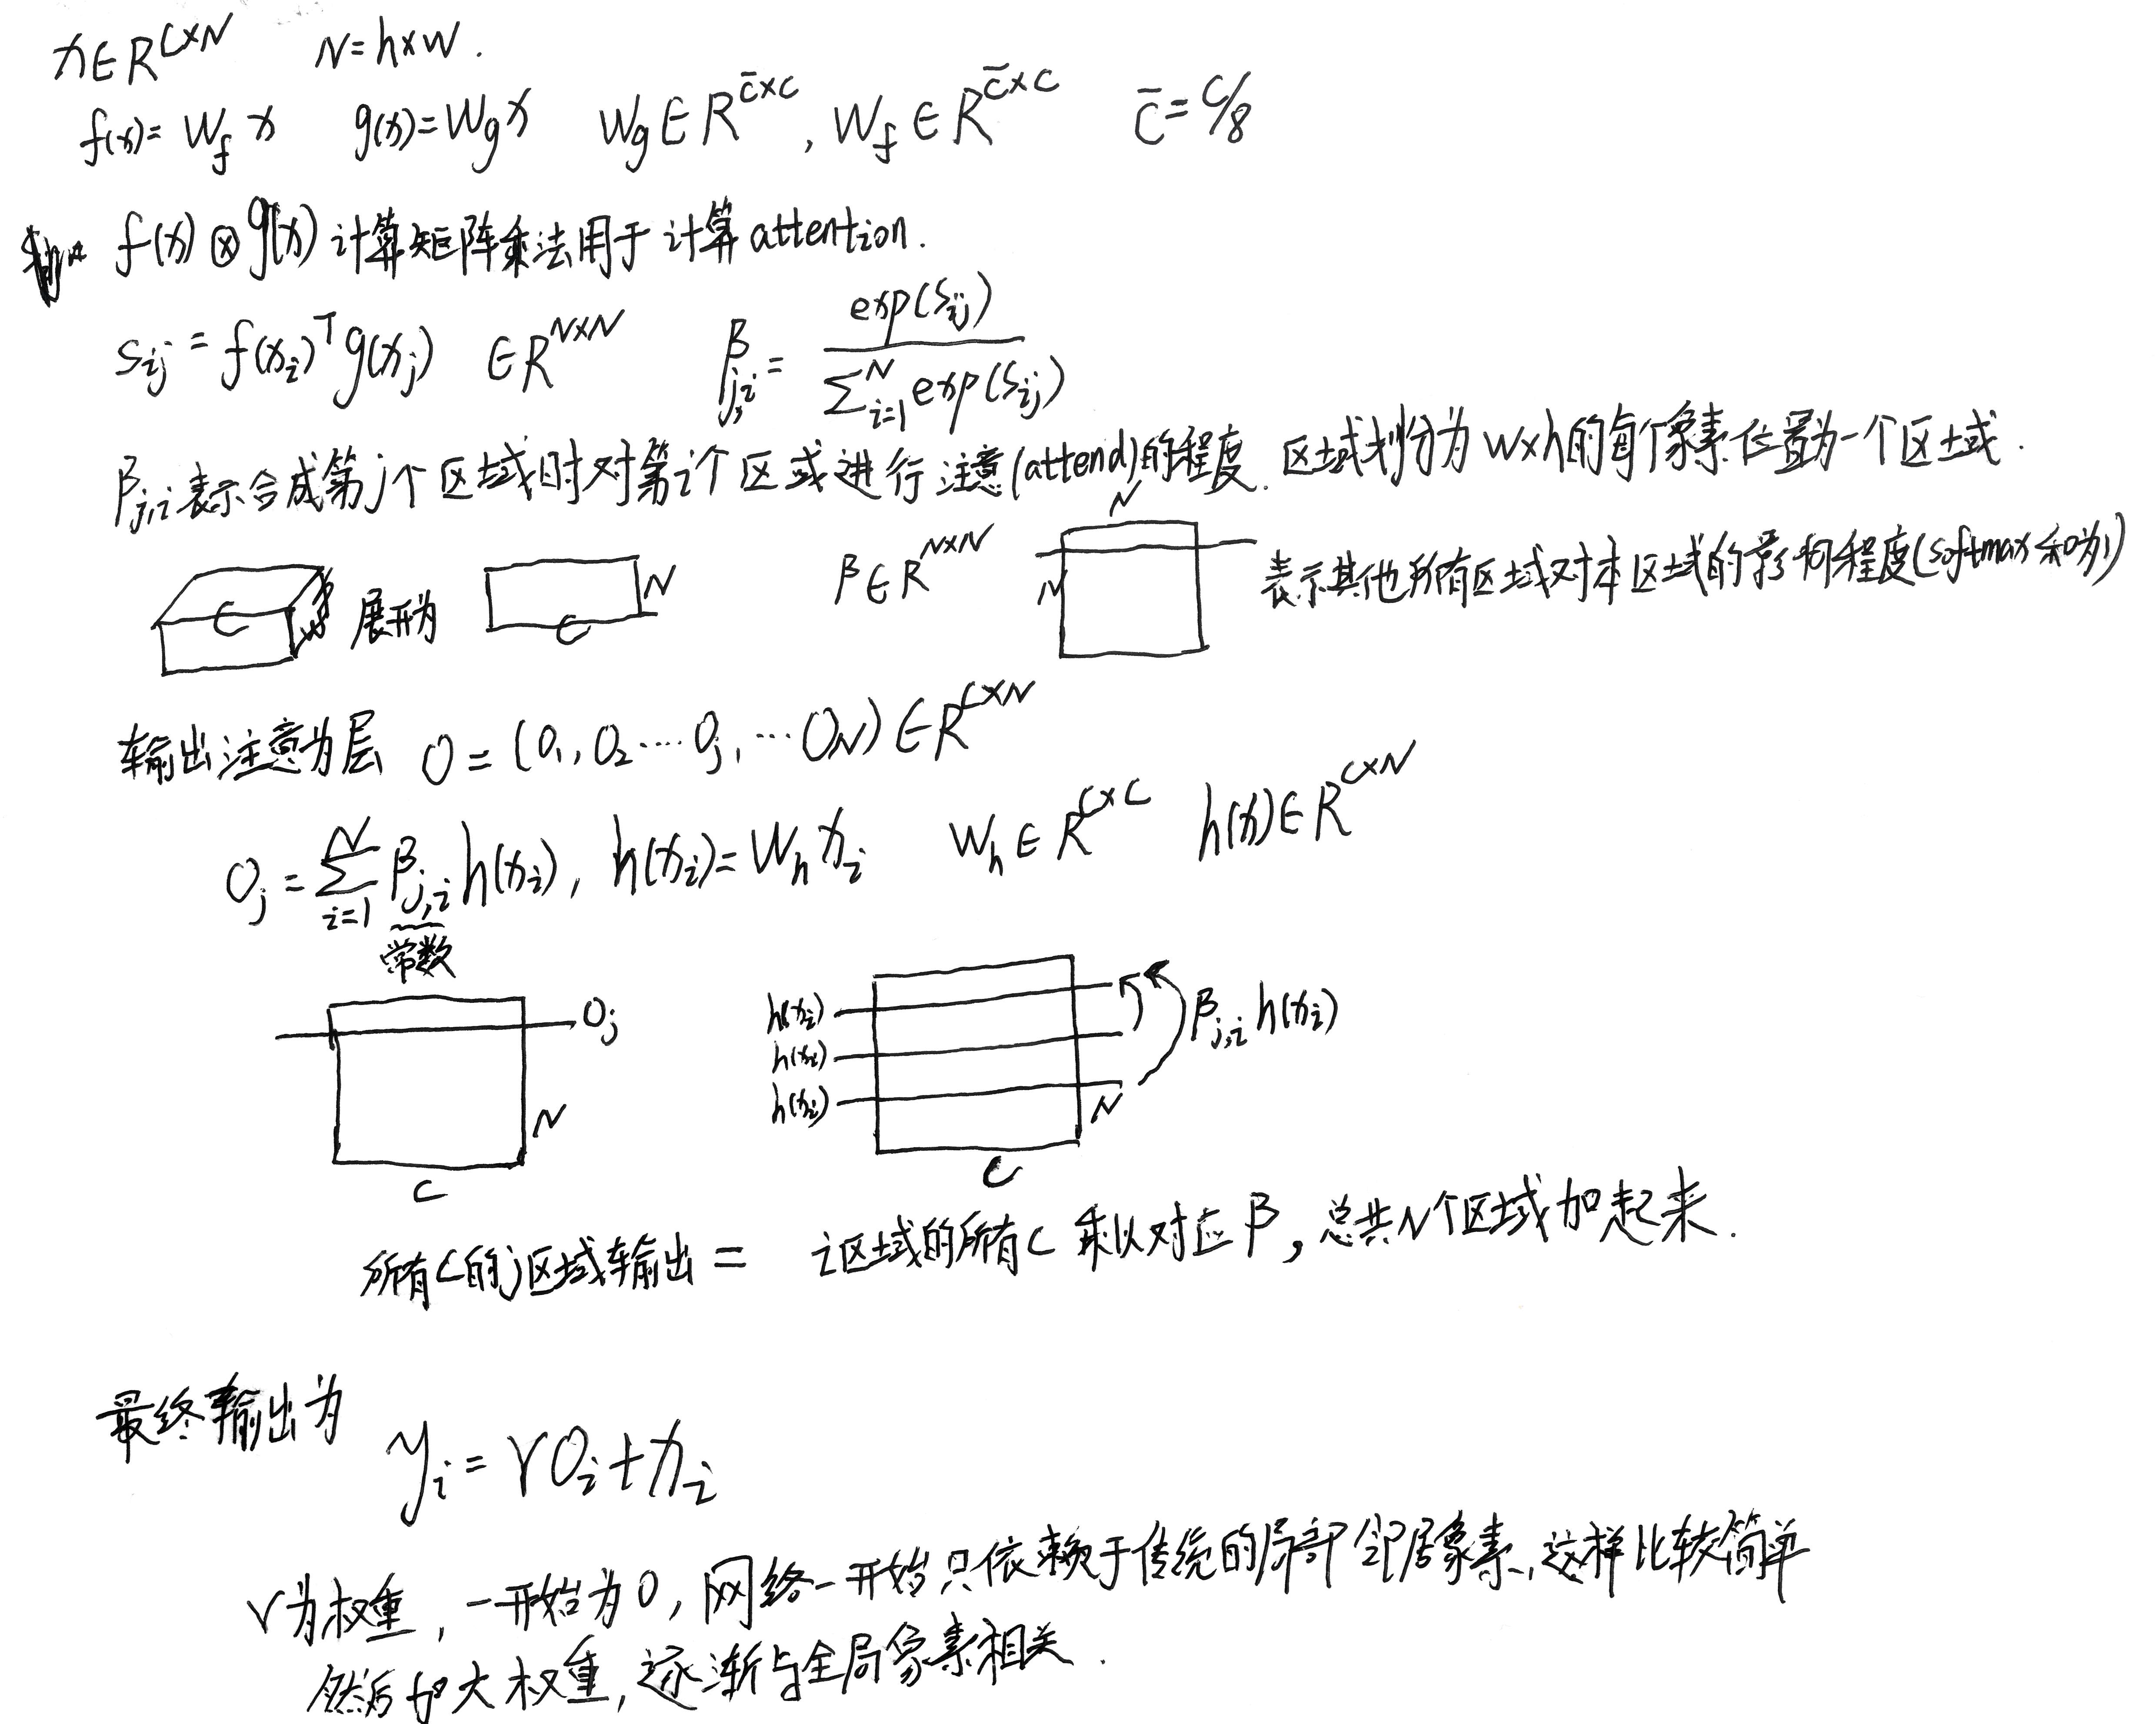 x∈R^{C×N} N=h×w.
f(x)=W_f x g(x)=W_g x W_g∈R^{c̄×c}, W_f∈R^{c̄×c} c̄=c/8
f(x)⊗g(x)计算矩阵乘法用于计算attention.
S_{ij}=f(x_i)^T g(x_j) ∈R^{N×N} β_{j,i}=exp(S_{ij})/∑_{i=1}^N exp(S_{ij})
β_{j,i}表示合成第j个区域时对第i个区域进行注意(attend)的程度. 区域划分为w×h的每个象素位置为一个区域.
C 展开为 C N β∈R^{N×N} N N 表示其他所有区域对本区域的影响程度(softmax和为1)
输出注意力层 O=(O_1,O_2····O_j,···O_N)∈R^{C×N}
O_j=∑_{i=1}^N β_{j,i}h(x_i), h(x_i)=W_h x_i W_h∈R^{C×C} h(x)∈R^{C×N}
常数
O_j N C
h(x_i) h(x_i) h(x_i) N C β_{j,i}h(x_i)
所有C的j区域输出 = i区域的所有C 乘以对应β,总共N个区域加起来.
最终输出为
y_i=γO_i+x_i
γ为权重,一开始为0,网络一开始只依赖于传统的局部邻居象素,这样比较简单
然后扩大权重,逐渐与全局象素相关.